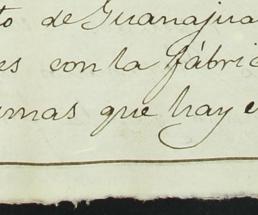 to de Guanajua
es con la fábric
umas que hay e